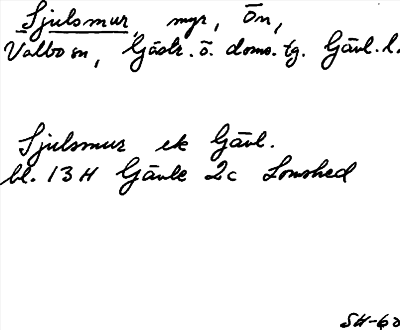 Sjulsmur, myr, Ön,
Valbo sn, Gästr. ö. doms. tg. Gävl. l.
Sjulsmur ek Gävl.
bl. 13 H Gävle 2c Lomshed
SH-60